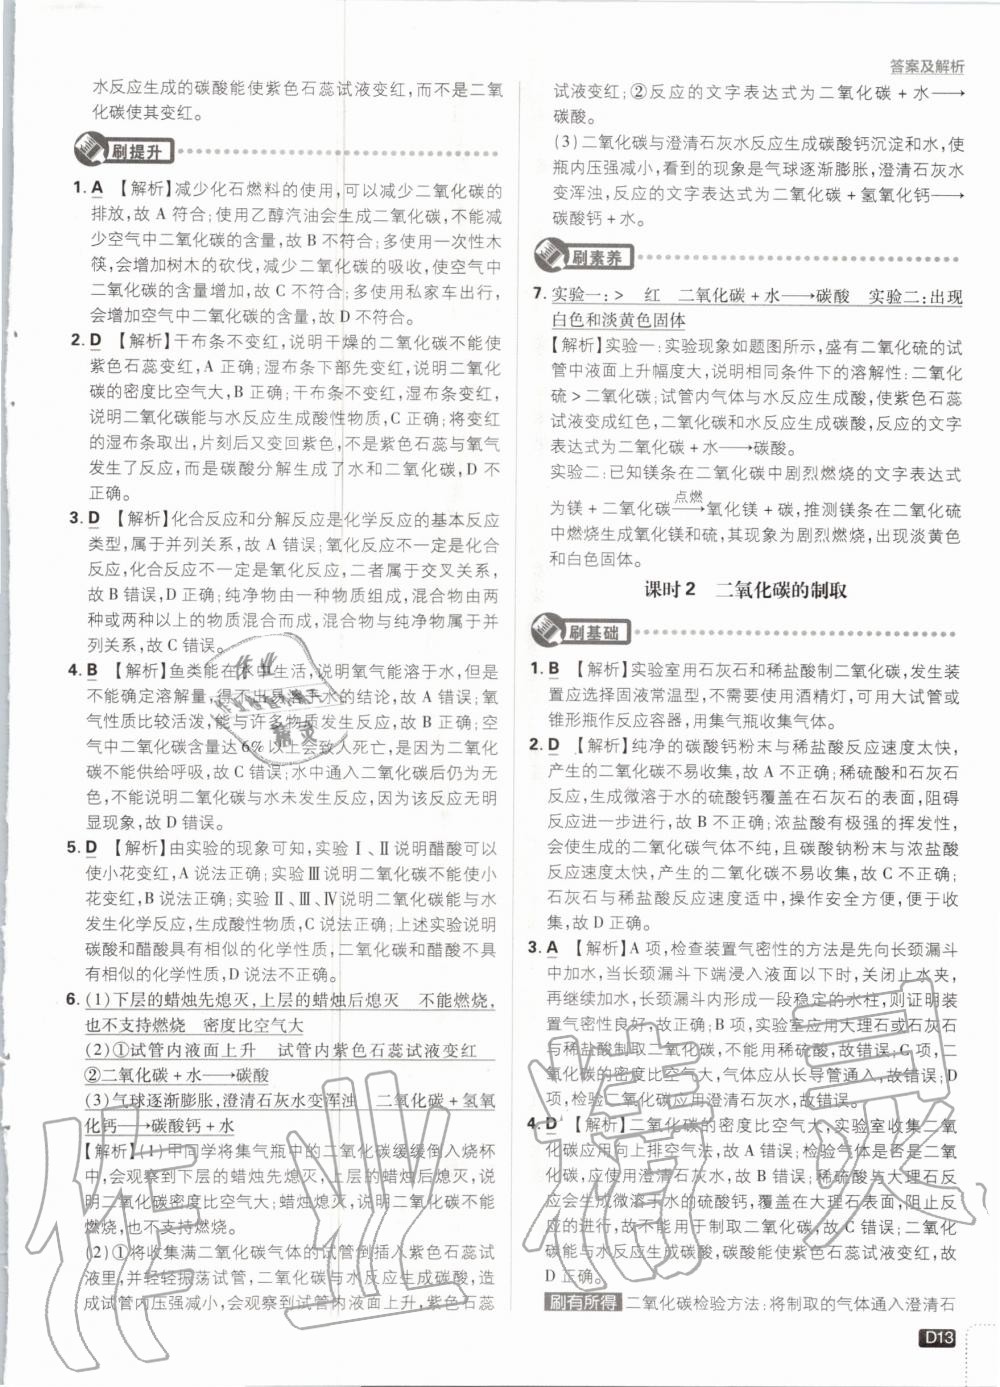 答案及解析
水反应生成的碳酸能使紫色石蕊试液变红,而不是二氧
化碳使其变红。
刷提升
1. A 【解析】减少化石燃料的使用,可以减少二氧化碳的
排放,故 A 符合;使用乙醇汽油会生成二氧化碳,不能减
少空气中二氧化碳的含量,故 B 不符合;多用一次性木
筷,会增加树木的砍伐,减少二氧化碳的吸收,使空气中
二氧化碳的含量增加,故 C 不符合;多使用私家车出行,
会增加空气中二氧化碳的含量,故 D 不符合。
2. D 【解析】干布条不变红,说明干燥的二氧化碳不能使
紫色石蕊变红,A 正确;湿布条下部先变红,说明二氧化
碳的密度比空气大,B 正确;干布条不变红,湿布条变红,
说明二氧化碳能与水反应生成酸性物质,C 正确;将变红
的湿布条取出,片刻后又变回紫色,不是紫色石蕊与氧气
发生了反应,而是碳酸分解生成了水和二氧化碳,D 不
正确。
3. D 【解析】化合反应和分解反应是化学反应的基本反应
类型,属于并列关系,故 A 错误;氧化反应不一定是化合
反应,化合反应不一定是氧化反应,二者属于交叉关系,
故 B 错误,D 正确;纯净物由一种物质组成,混合物由两
种或两种以上的物质混合而成,混合物与纯净物属于并
列关系,故 C 错误。
4. B 【解析】鱼类能在水中生活,说明氧气能溶于水,但是
不能确定溶解量,得不出易溶于水的结论,故 A 错误;氧
气性质比较活泼,能与许多物质发生反应,故 B 正确;空
气中二氧化碳含量达 6% 以上会致人死亡,是因为二氧化
碳不能供给呼吸,故 C 错误;水中通入二氧化碳后仍为无
色,不能说明二氧化碳与水未发生反应,因为该反应无明
显现象,故 D 错误。
5. D 【解析】由实验的现象可知,实验Ⅰ、Ⅱ说明醋酸可以
使小花变红,A 说法正确;实验Ⅲ说明二氧化碳不能使小
花变红,B 说法正确;实验Ⅱ、Ⅲ、Ⅳ说明二氧化碳能与水
发生化学反应,生成酸性物质,C 说法正确;上述实验说明
碳酸和醋酸具有相似的化学性质,二氧化碳和醋酸不具
有相似的化学性质,D 说法不正确。
6. (1)下层的蜡烛先熄灭,上层的蜡烛后熄灭 不能燃烧,
也不支持燃烧 密度比空气大
(2)①试管内液面上升 试管内紫色石蕊试液变红
②二氧化碳 + 水⟶碳酸
(3)气球逐渐膨胀,澄清石灰水变浑浊 二氧化碳 + 氢氧
化钙⟶碳酸钙 + 水
【解析】(1)甲同学将集气瓶中的二氧化碳缓缓倒入烧杯
中,会观察到下层的蜡烛先熄灭,上层的蜡烛后熄灭,说
明二氧化碳密度比空气大;蜡烛熄灭,说明二氧化碳不能
燃烧,也不支持燃烧。
(2)①将收集满二氧化碳气体的试管倒插入紫色石蕊试
液里,并轻轻振荡试管,二氧化碳与水反应生成碳酸,造
成试管内压强减小,会观察到试管内液面上升,紫色石蕊
试液变红;②反应的文字表达式为二氧化碳 + 水⟶
碳酸。
(3)二氧化碳与澄清石灰水反应生成碳酸钙沉淀和水,使
瓶内压强减小,看到的现象是气球逐渐膨胀,澄清石灰水
变浑浊,反应的文字表达式为二氧化碳 + 氢氧化钙⟶
碳酸钙 + 水。
刷素养
7. 实验一:> 红 二氧化碳 + 水⟶碳酸 实验二:出现
白色和淡黄色固体
【解析】实验一:实验现象如题图所示,盛有二氧化硫的试
管中液面上升幅度大,说明相同条件下的溶解性:二氧化
硫>二氧化碳;试管内气体与水反应生成酸,使紫色石蕊
试液变成红色,二氧化碳和水反应生成碳酸,反应的文字
表达式为二氧化碳 + 水⟶碳酸。
实验二:已知镁条在二氧化碳中剧烈燃烧的文字表达式
为镁 + 二氧化碳 点燃⟶ 氧化镁 + 碳,推测镁条在二氧化硫
中燃烧生成氧化镁和硫,其现象为剧烈燃烧,出现淡黄色
和白色固体。
课时 2 二氧化碳的制取
刷基础
1. B 【解析】实验室用石灰石和稀盐酸制二氧化碳,发生装
置应选择固液常温型,不需要使用酒精灯,可用大试管或
锥形瓶作反应容器,用集气瓶收集气体。
2. D 【解析】纯净的碳酸钙粉末与稀盐酸反应速度太快,
产生的二氧化碳不易收集,故 A 不正确;稀硫酸和石灰石
反应,生成微溶于水的硫酸钙覆盖在石灰石的表面,阻碍
反应进一步进行,故 B 不正确;浓盐酸有极强的挥发性,
会使生成的二氧化碳气体不纯,且碳酸钠粉末与浓盐酸
反应速度太快,产生的二氧化碳不易收集,故 C 不正确;
石灰石与稀盐酸反应速度适中,操作安全方便,便于收
集,故 D 正确。
3. A 【解析】A 项,检查装置气密性的方法是先向长颈漏斗
中加水,当长颈漏斗下端浸入液面下时,关闭止水夹,
再继续加水,长颈漏斗内形成一段稳定的水柱,则证明装
置气密性良好,故正确;B 项,实验室应用大理石或石灰石
与稀盐酸制取二氧化碳,不能用稀硫酸,故错误;C 项,二
氧化碳的密度比空气大,气体应从长导管通入,故错误;D
项,检验二氧化碳应用澄清石灰水,故错误。
4. D 【解析】二氧化碳的密度比空气大,实验室收集二氧
化碳应用向上排空气法,故 A 错误;检验气体是否是二氧
化碳,应使用澄清石灰水,故 B 错误;稀硫酸与大理石反
应会生成微溶于水的硫酸钙,覆盖在大理石表面,阻止反
应的进行,故不能用于制取二氧化碳,故 C 错误;二氧化
碳能与水反应生成碳酸,碳酸能使紫色石蕊试液变红,故
D 正确。
刷有所得 二氧化碳检验方法:将制取的气体通入澄清石
D13
作业精灵